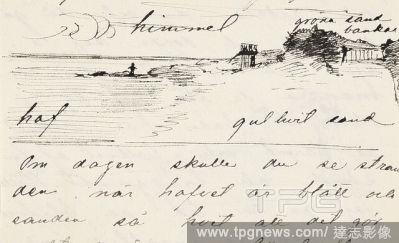 himmel
gröna sand
bankar
haf
gul hvit sand
Om dagen skulle du se stran
den när hafvet är blått och
sanden så hvit att det gör
TPG
www.tpgnews.com / 達志影像